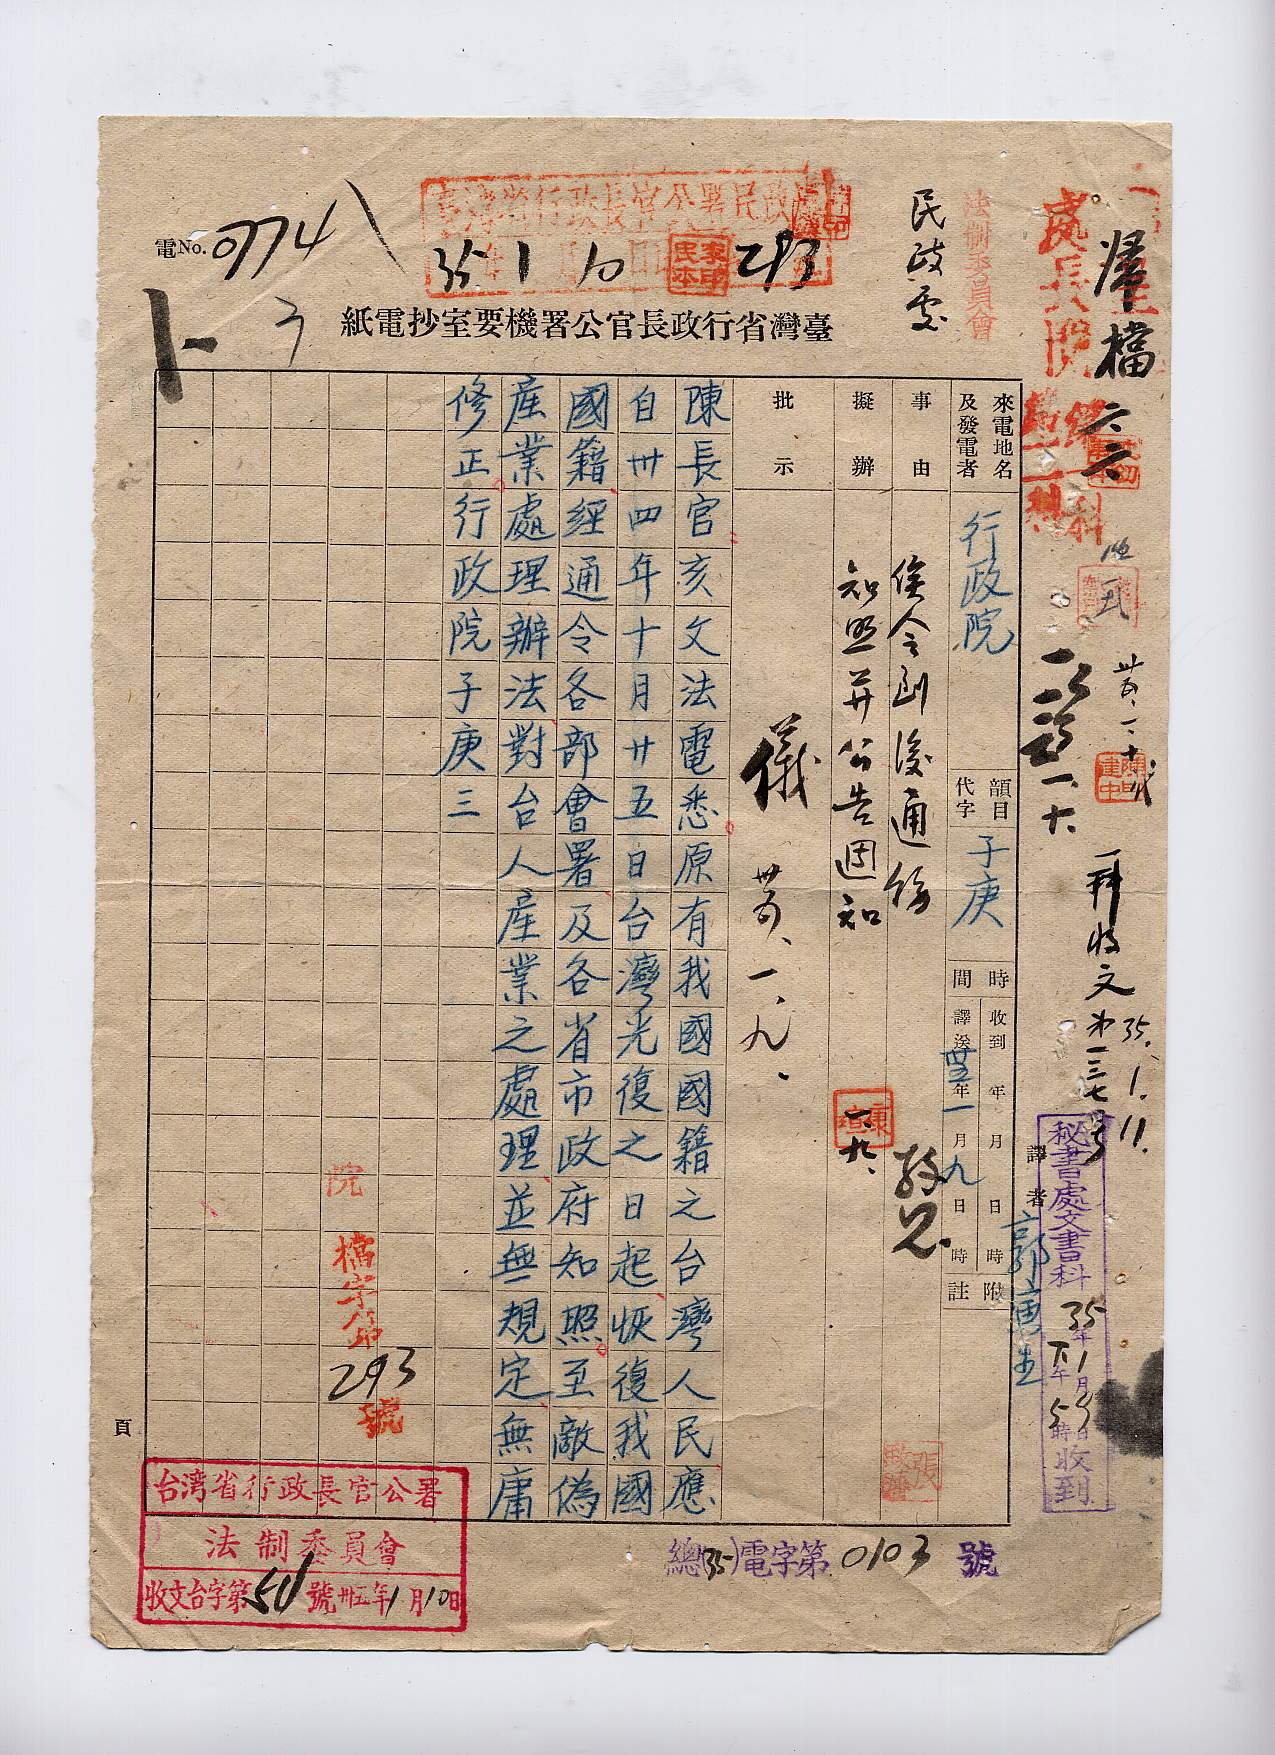 電No. 0774
臺灣省行政長官公署民政處
35 1 10 293
民政處
法制委員會
歸檔 六六
臺灣省行政長官公署機要室抄電紙
來電地名及發電者
行政院
韻目代字
子庚
時間
收到 年 月 日 時
譯送 卅五年一月九日 時
附註
譯者
事由
擬辦
俟令到後通飭
知照并公告週知
一、九、
批示
儀 卅五、一、九、
陳長官亥文法電悉原有我國國籍之台灣人民應
自卅四年十月廿五日台灣光復之日起恢復我國
國籍經通令各部會署及各省市政府知照至敵偽
產業處理辦法對台人產業之處理並無規定無庸
修正行政院子庚三
一科收文第一三七號
35. 1. 11.
秘書處文書科
35年1月9日下午5時收到
院
檔字第293號
頁
台灣省行政長官公署
法制委員會
收文台字第51號卅五年1月10日
總(35)電字第0103號